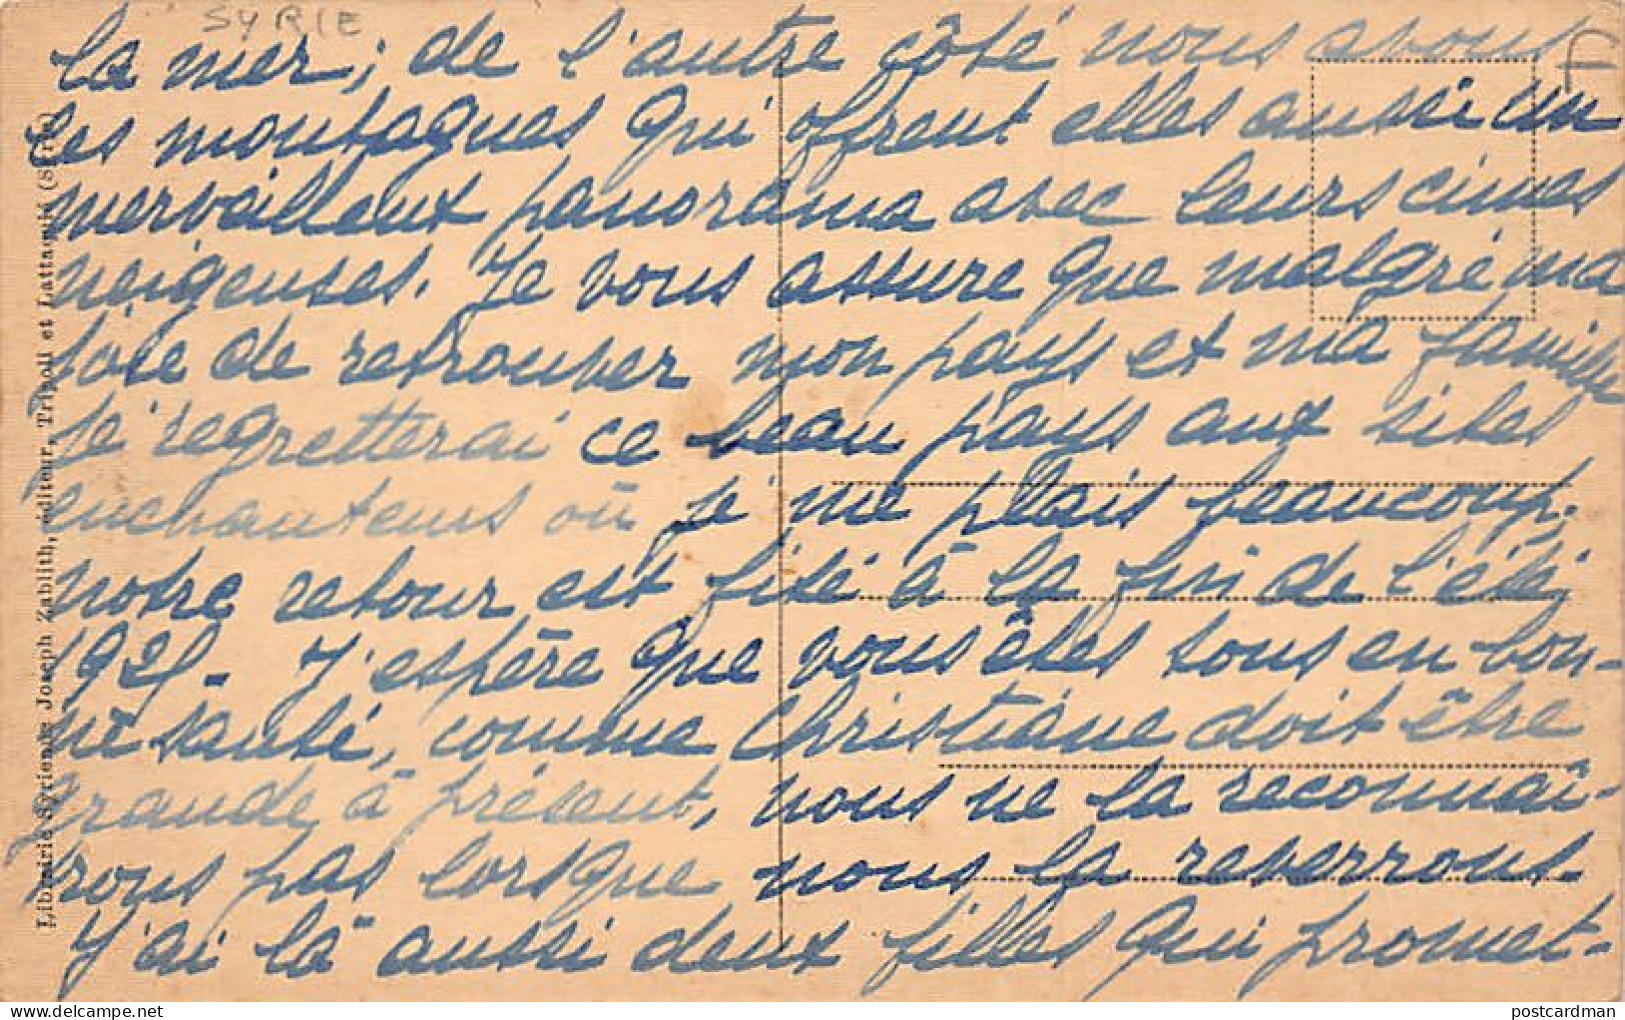 SYRIE
F
la mer; de l'autre côté nous avons
les montagnes qui offrent elles aussi un
mervailleux panorama avec leurs cimes
neigeuses. Je vous assure que malgré ma
joie de retrouver mon pays et ma famille
je regretterai ce beau pays aux sites
enchanteurs où je me plais beaucoup,
notre retour est fixé à la fin de l'été
J'espère que vous êtes tous en bon-
ne santé, comme Christiane doit être
grande à présent, nous ne la reconnaî-
trons pas lorsque nous la reverrons.
J'ai là aussi deux filles qui promet-
Librairie Syrienne Joseph Zablith, éditeur, Tripoli et Lattaquié (Syrie)
postcardman